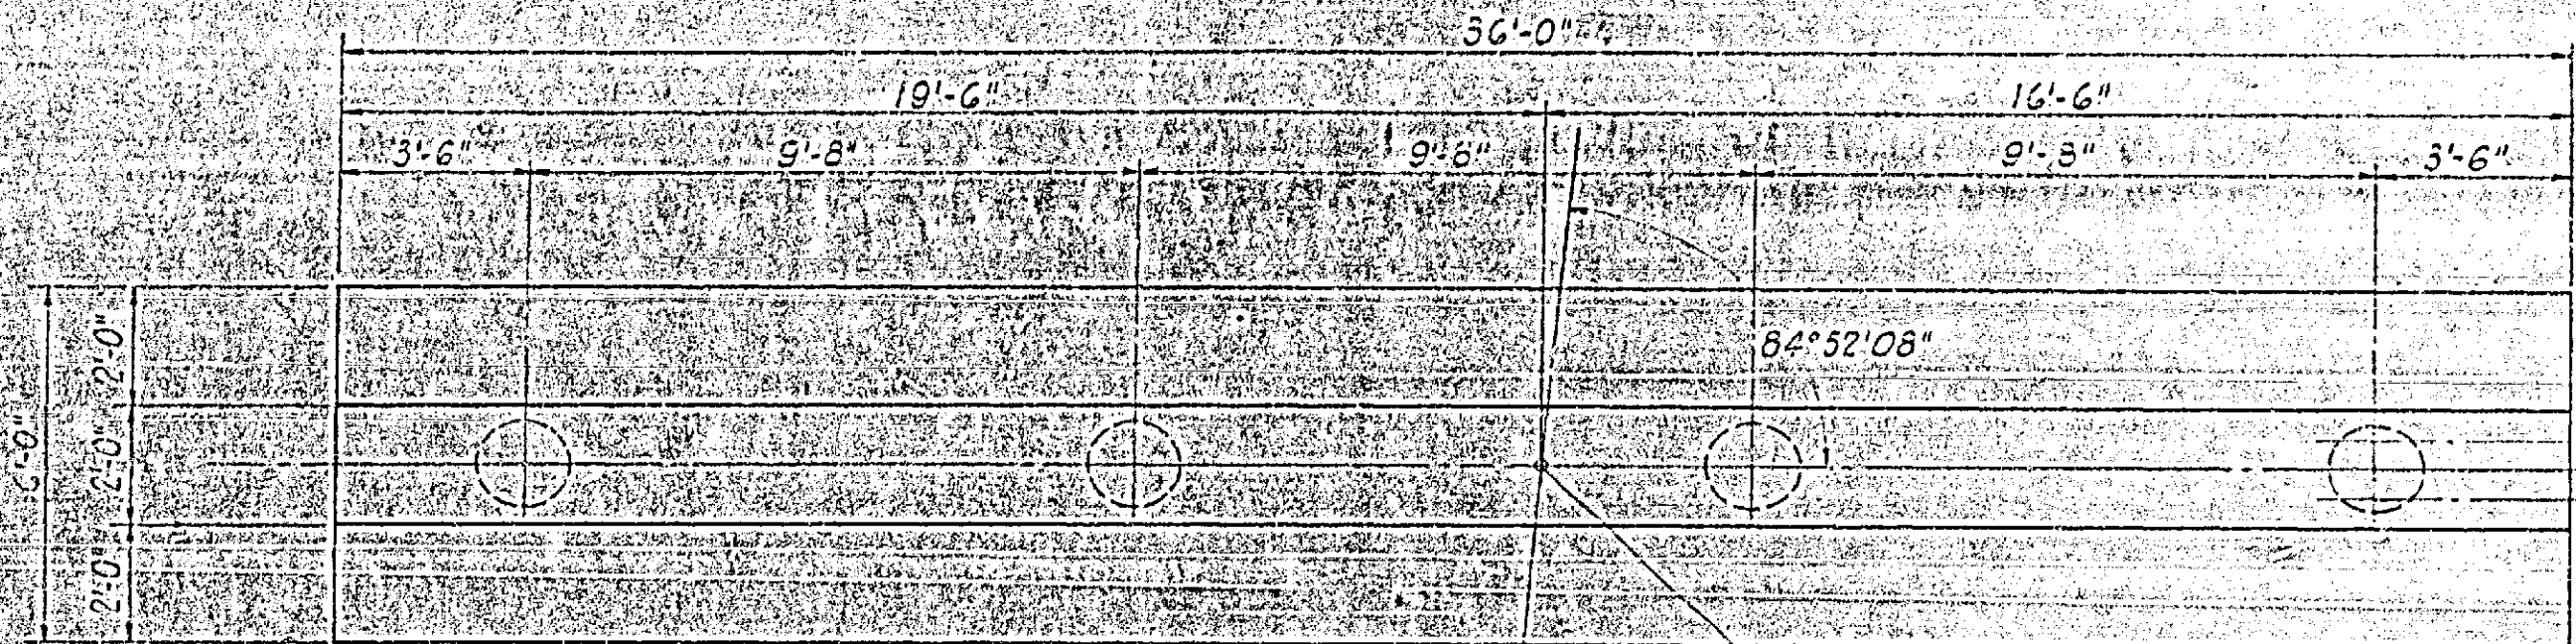 36'-0"
19'-6" 16'-6"
3'-6" 9'-8" 9'-8" 9'-8" 3'-6"
84°52'08"
6'-0"
2'-0"
2'-0"
2'-0"